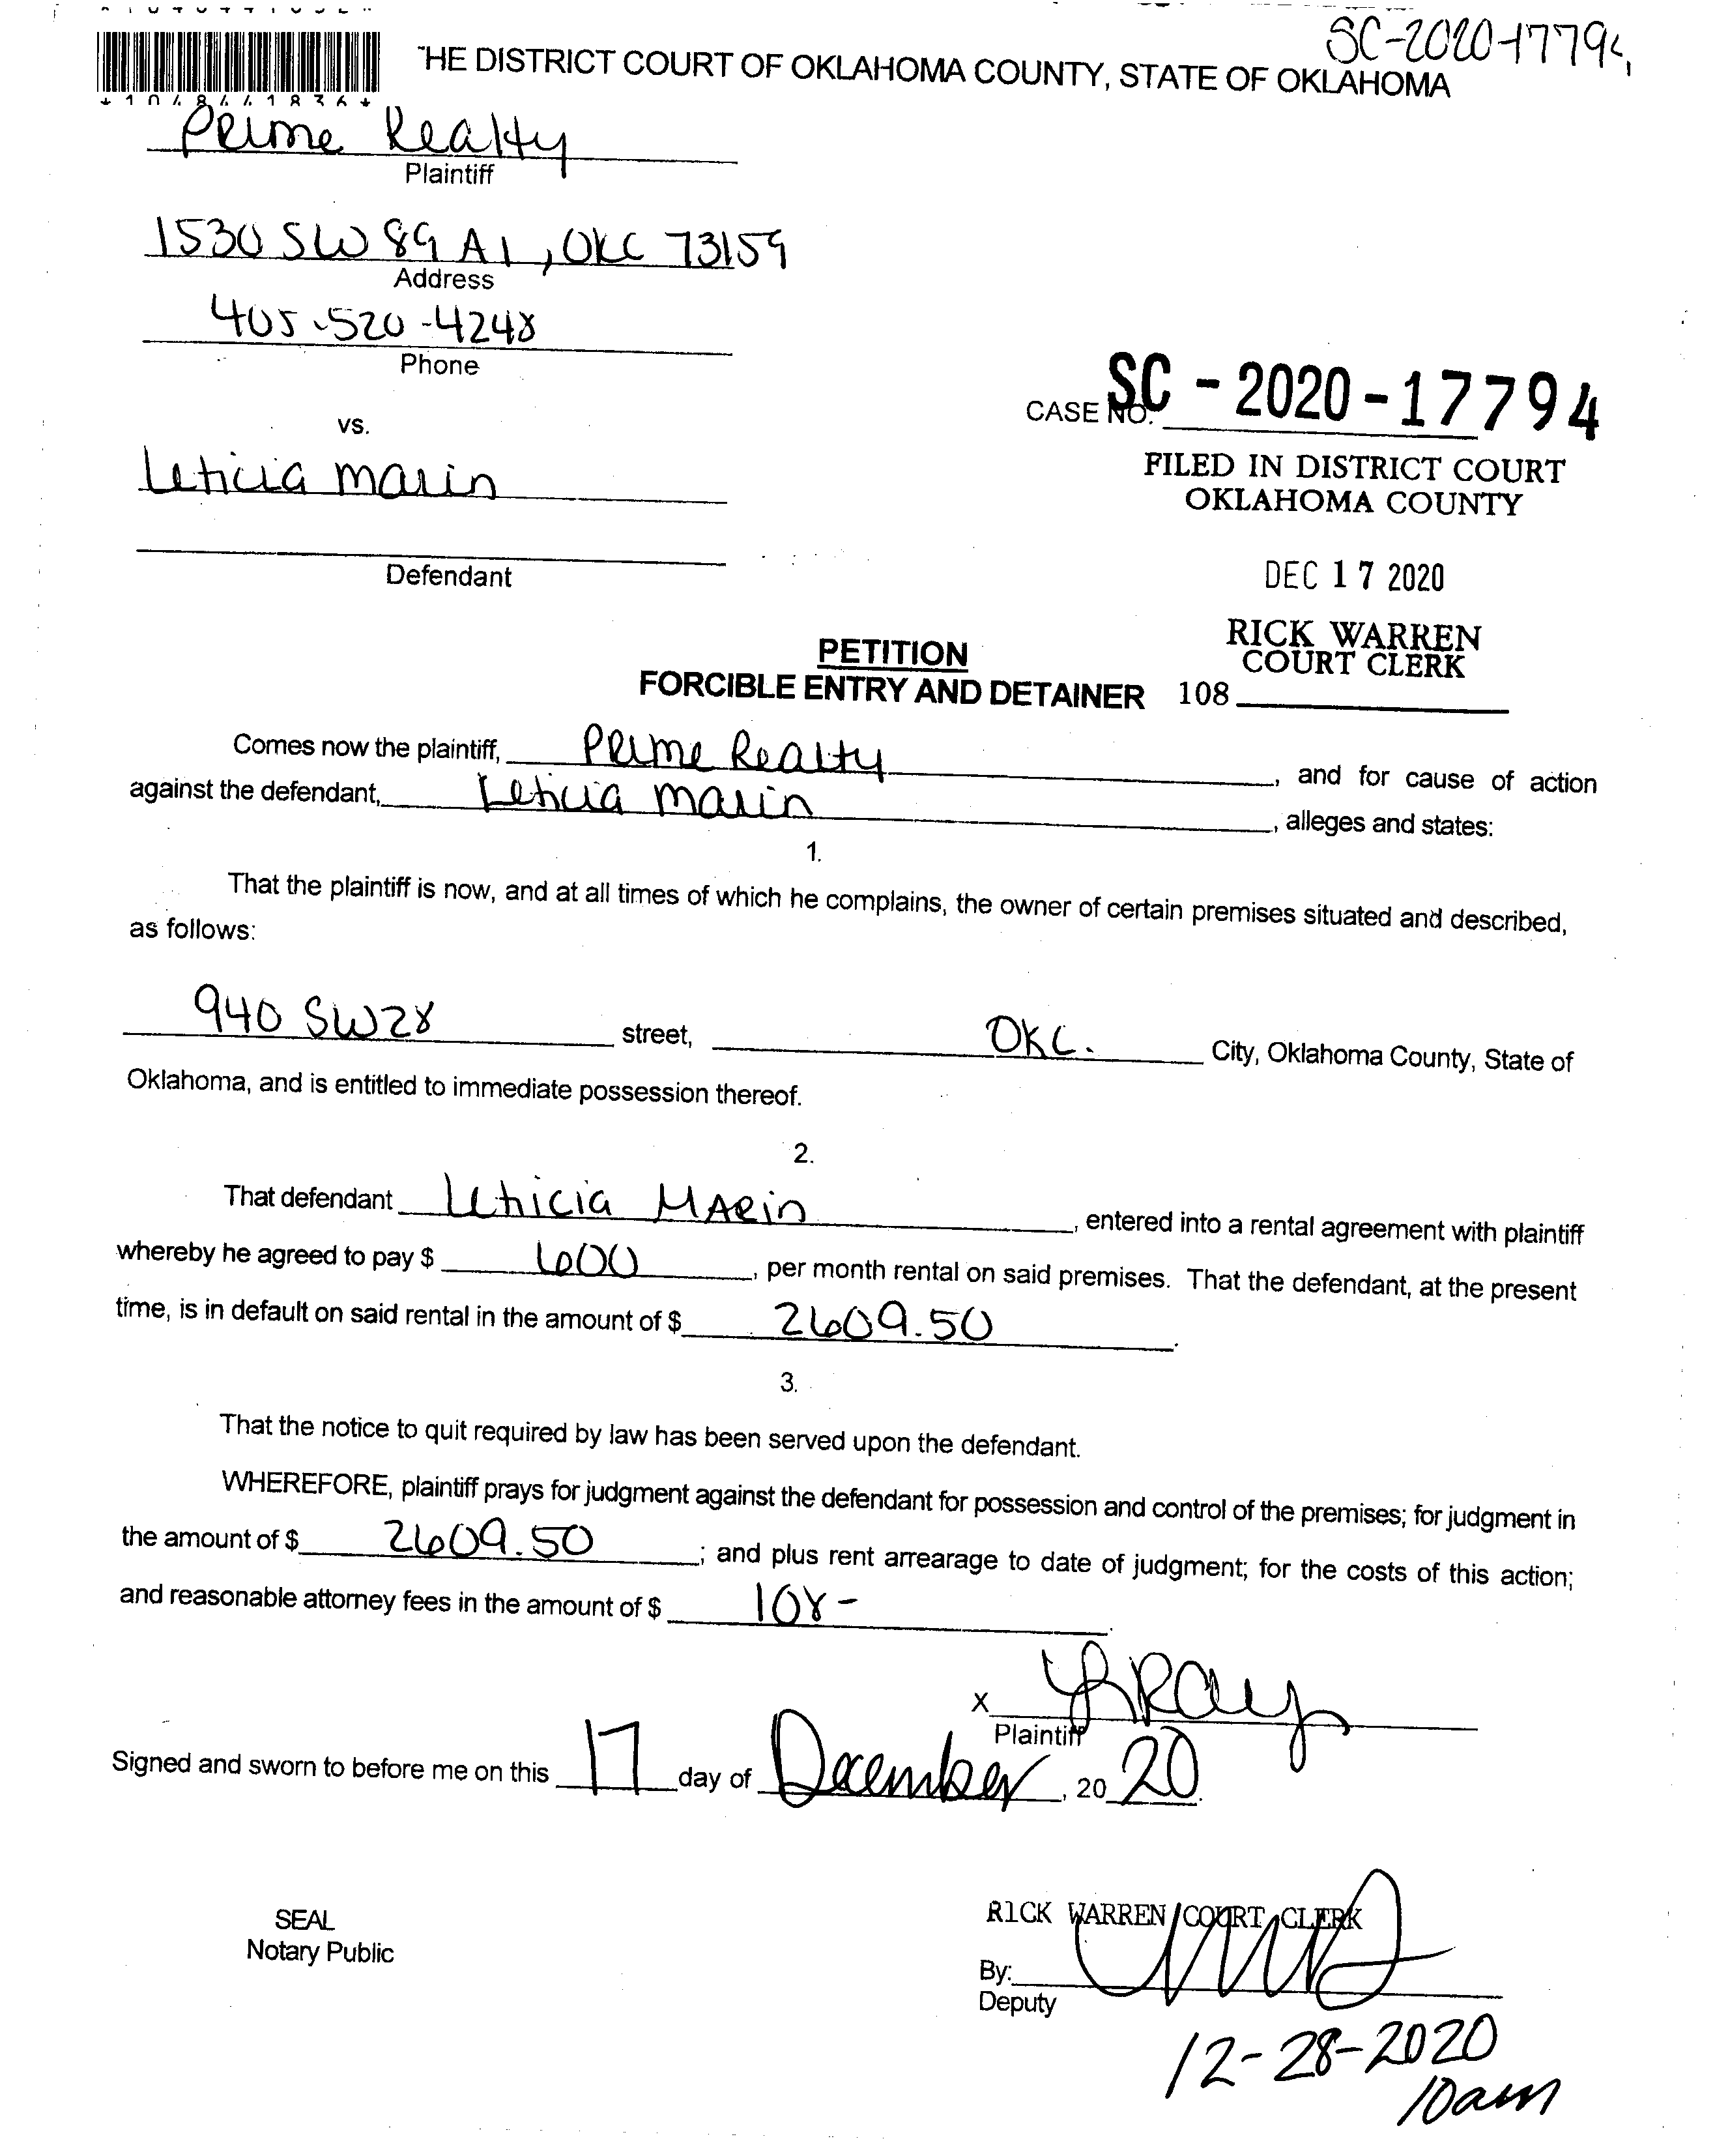 SC-2020-17794
THE DISTRICT COURT OF OKLAHOMA COUNTY, STATE OF OKLAHOMA
*1048441836*
Prime Realty
Plaintiff
1530 SW 89 A1, OKC 73159
Address
405-520-4248
Phone
CASE NO. SC-2020-17794
vs.
FILED IN DISTRICT COURT
OKLAHOMA COUNTY
Leticia Marin
Defendant
DEC 17 2020
RICK WARREN
COURT CLERK
PETITION
FORCIBLE ENTRY AND DETAINER 108
Comes now the plaintiff, Prime Realty, and for cause of action
against the defendant, Leticia Marin, alleges and states:
1.
That the plaintiff is now, and at all times of which he complains, the owner of certain premises situated and described,
as follows:
940 SW 28 street, OKC. City, Oklahoma County, State of
Oklahoma, and is entitled to immediate possession thereof.
2.
That defendant Leticia Marin, entered into a rental agreement with plaintiff
whereby he agreed to pay $ 600, per month rental on said premises. That the defendant, at the present
time, is in default on said rental in the amount of $ 2609.50.
3.
That the notice to quit required by law has been served upon the defendant.
WHEREFORE, plaintiff prays for judgment against the defendant for possession and control of the premises; for judgment in
the amount of $ 2609.50; and plus rent arrearage to date of judgment; for the costs of this action;
and reasonable attorney fees in the amount of $ 108-.
X
Plaintiff
Signed and sworn to before me on this 17 day of December, 2020.
SEAL
Notary Public
RICK WARREN COURT CLERK
By:
Deputy
12-28-2020
10am